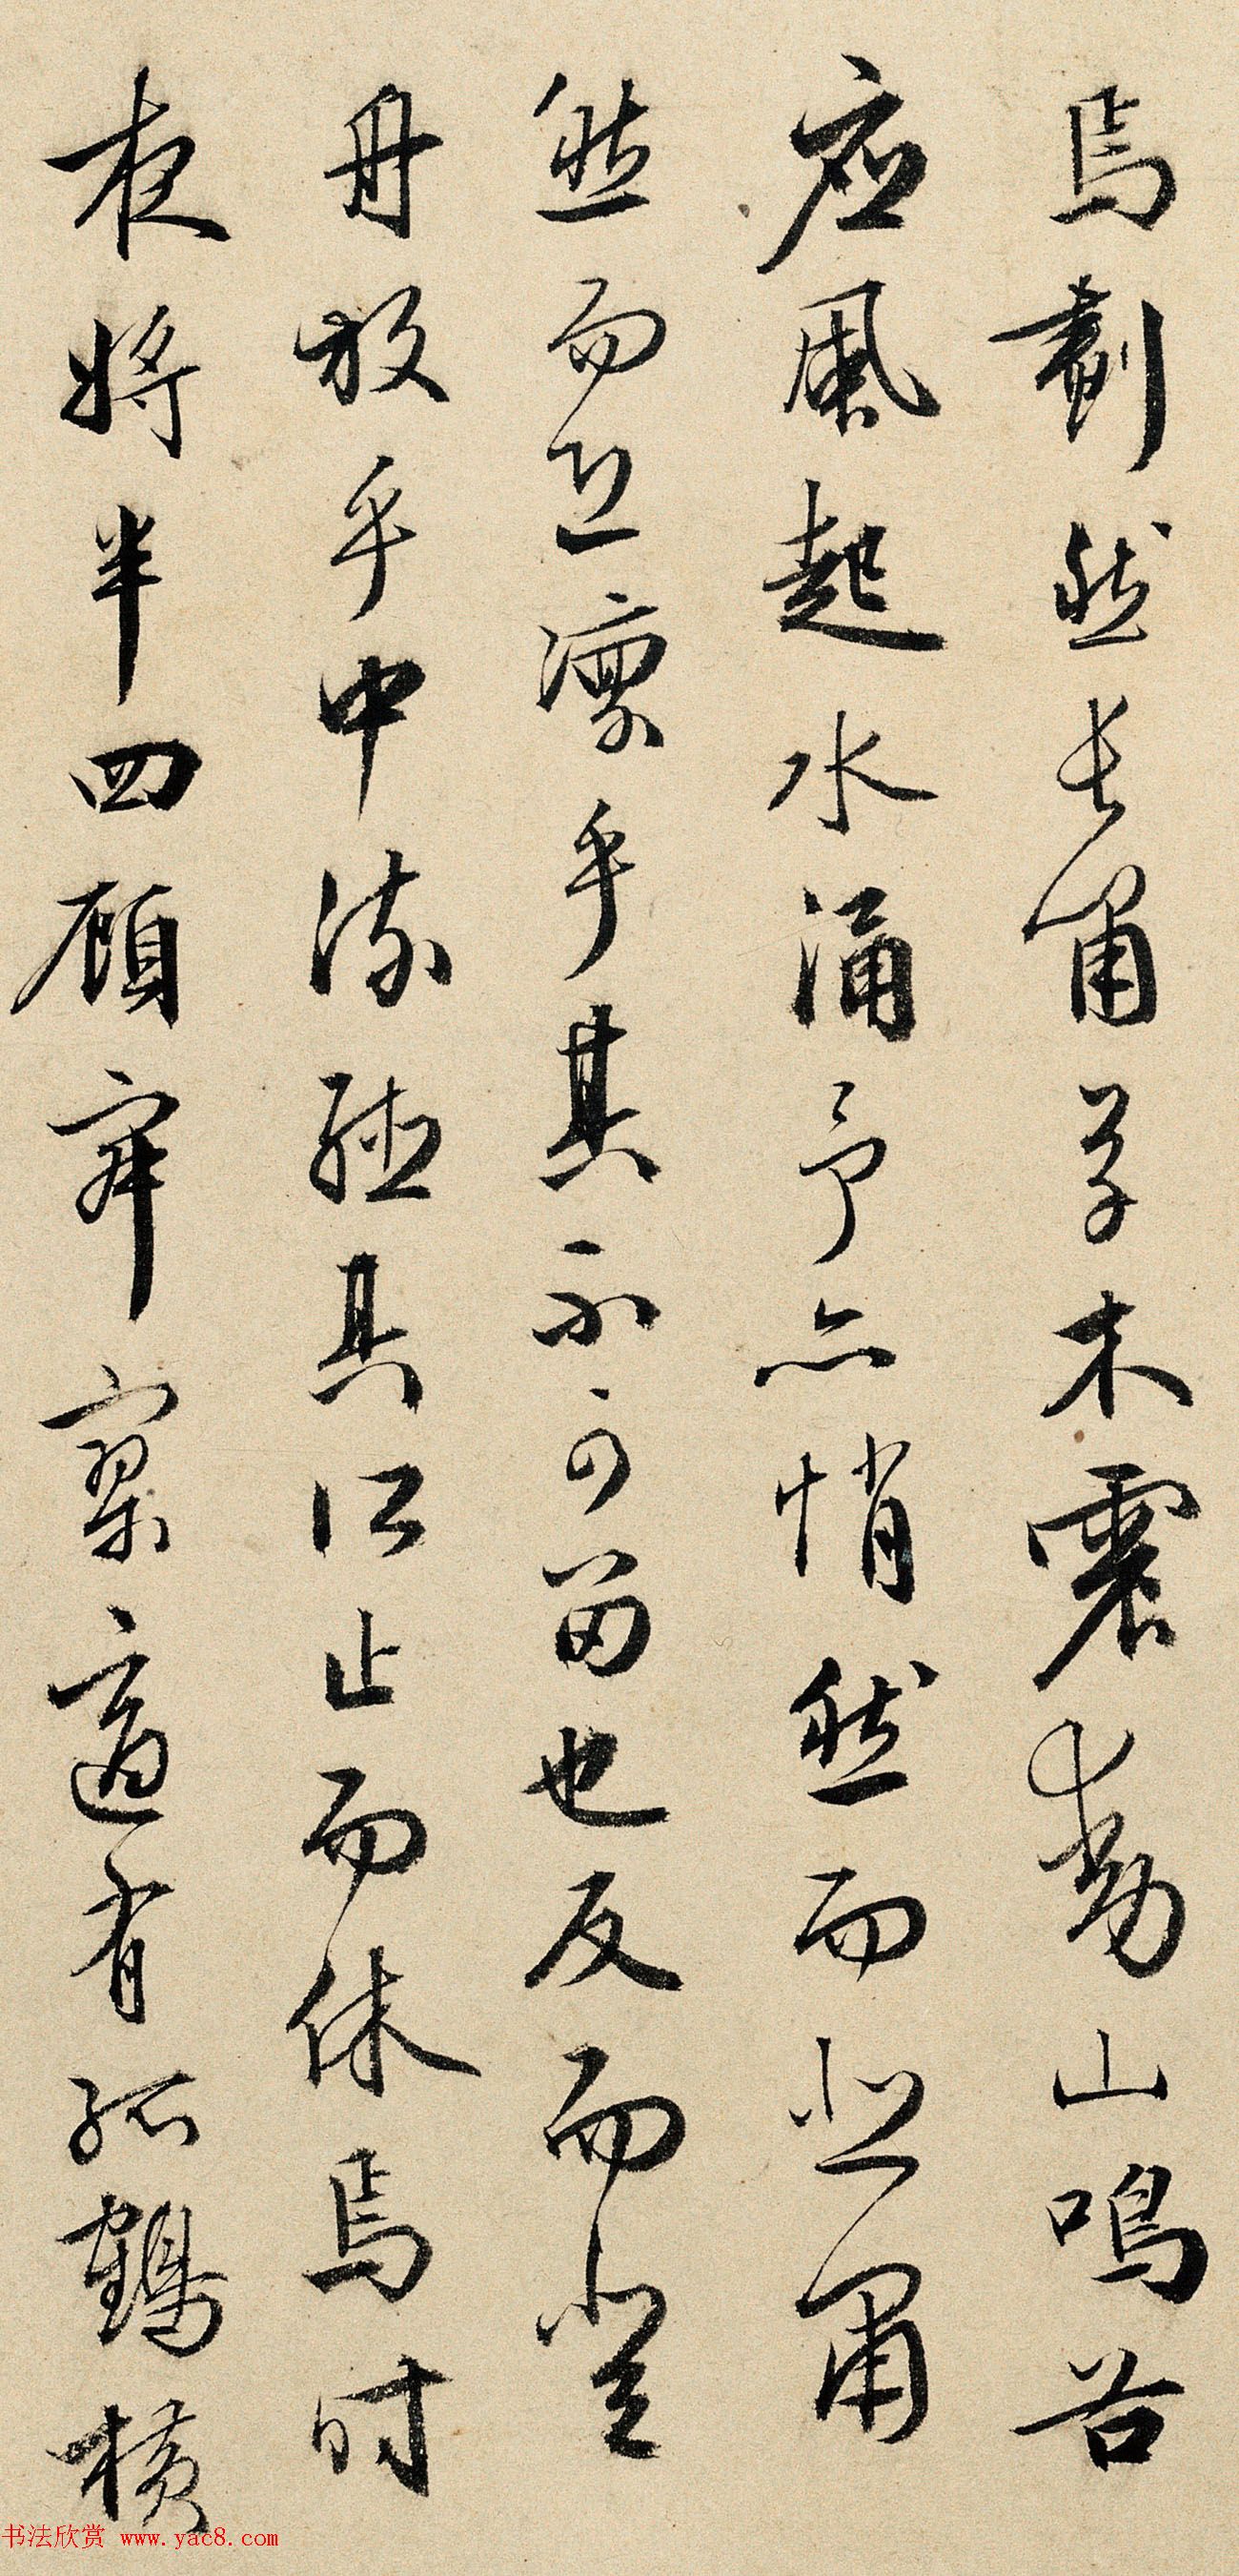 焉劃然長嘯草木震動山鳴谷
應風起水涌予亦悄然而悲肅
然而恐凜乎其不可留也反而登
舟放乎中流聽其所止而休焉時
夜將半四顧寂寥適有孤鶴橫
书法欣赏 www.yac8.com